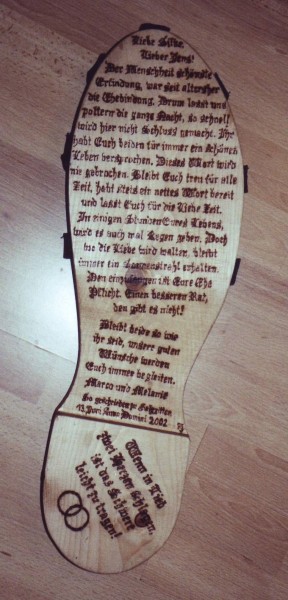 Liebe Silke,
Lieber Jens!
Der Menschheit schönste
Erfindung, war seit altersher
die Ehebindung. Drum lasst uns
poltern die ganze Nacht, so schnell
wird hier nicht Schluss gemacht. Ihr
habt Euch beiden für immer ein schönes
Leben versprochen. Dieses Wort wird
nie gebrochen. Bleibt Euch treu für alle
Zeit, habt stets ein nettes Wort bereit
und lasst Euch für die Liebe Zeit.
In einigen Stunden Eures Lebens,
wird es auch mal Regen geben. Doch
wo die Liebe wird walten, bleibt
immer ein Sonnenstrahl erhalten.
Den einzufangen ist Eure Ehe
Pflicht. Einen besseren Rat,
den gibt es nicht!
Bleibt beide so wie
ihr seid, unsere guten
Wünsche werden
Euch immer begleiten.
Marco und Melanie
So geschrieben zu
13. Juni Anno Domini 2002
Wenn in Lied
zwei Herzen schlagen,
ist das Schwere
leicht zu tragen!